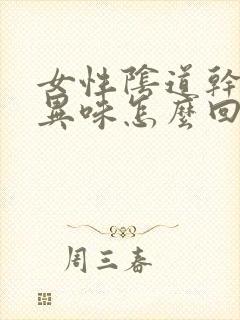 女性陰道幹
異味怎麼回
周三春